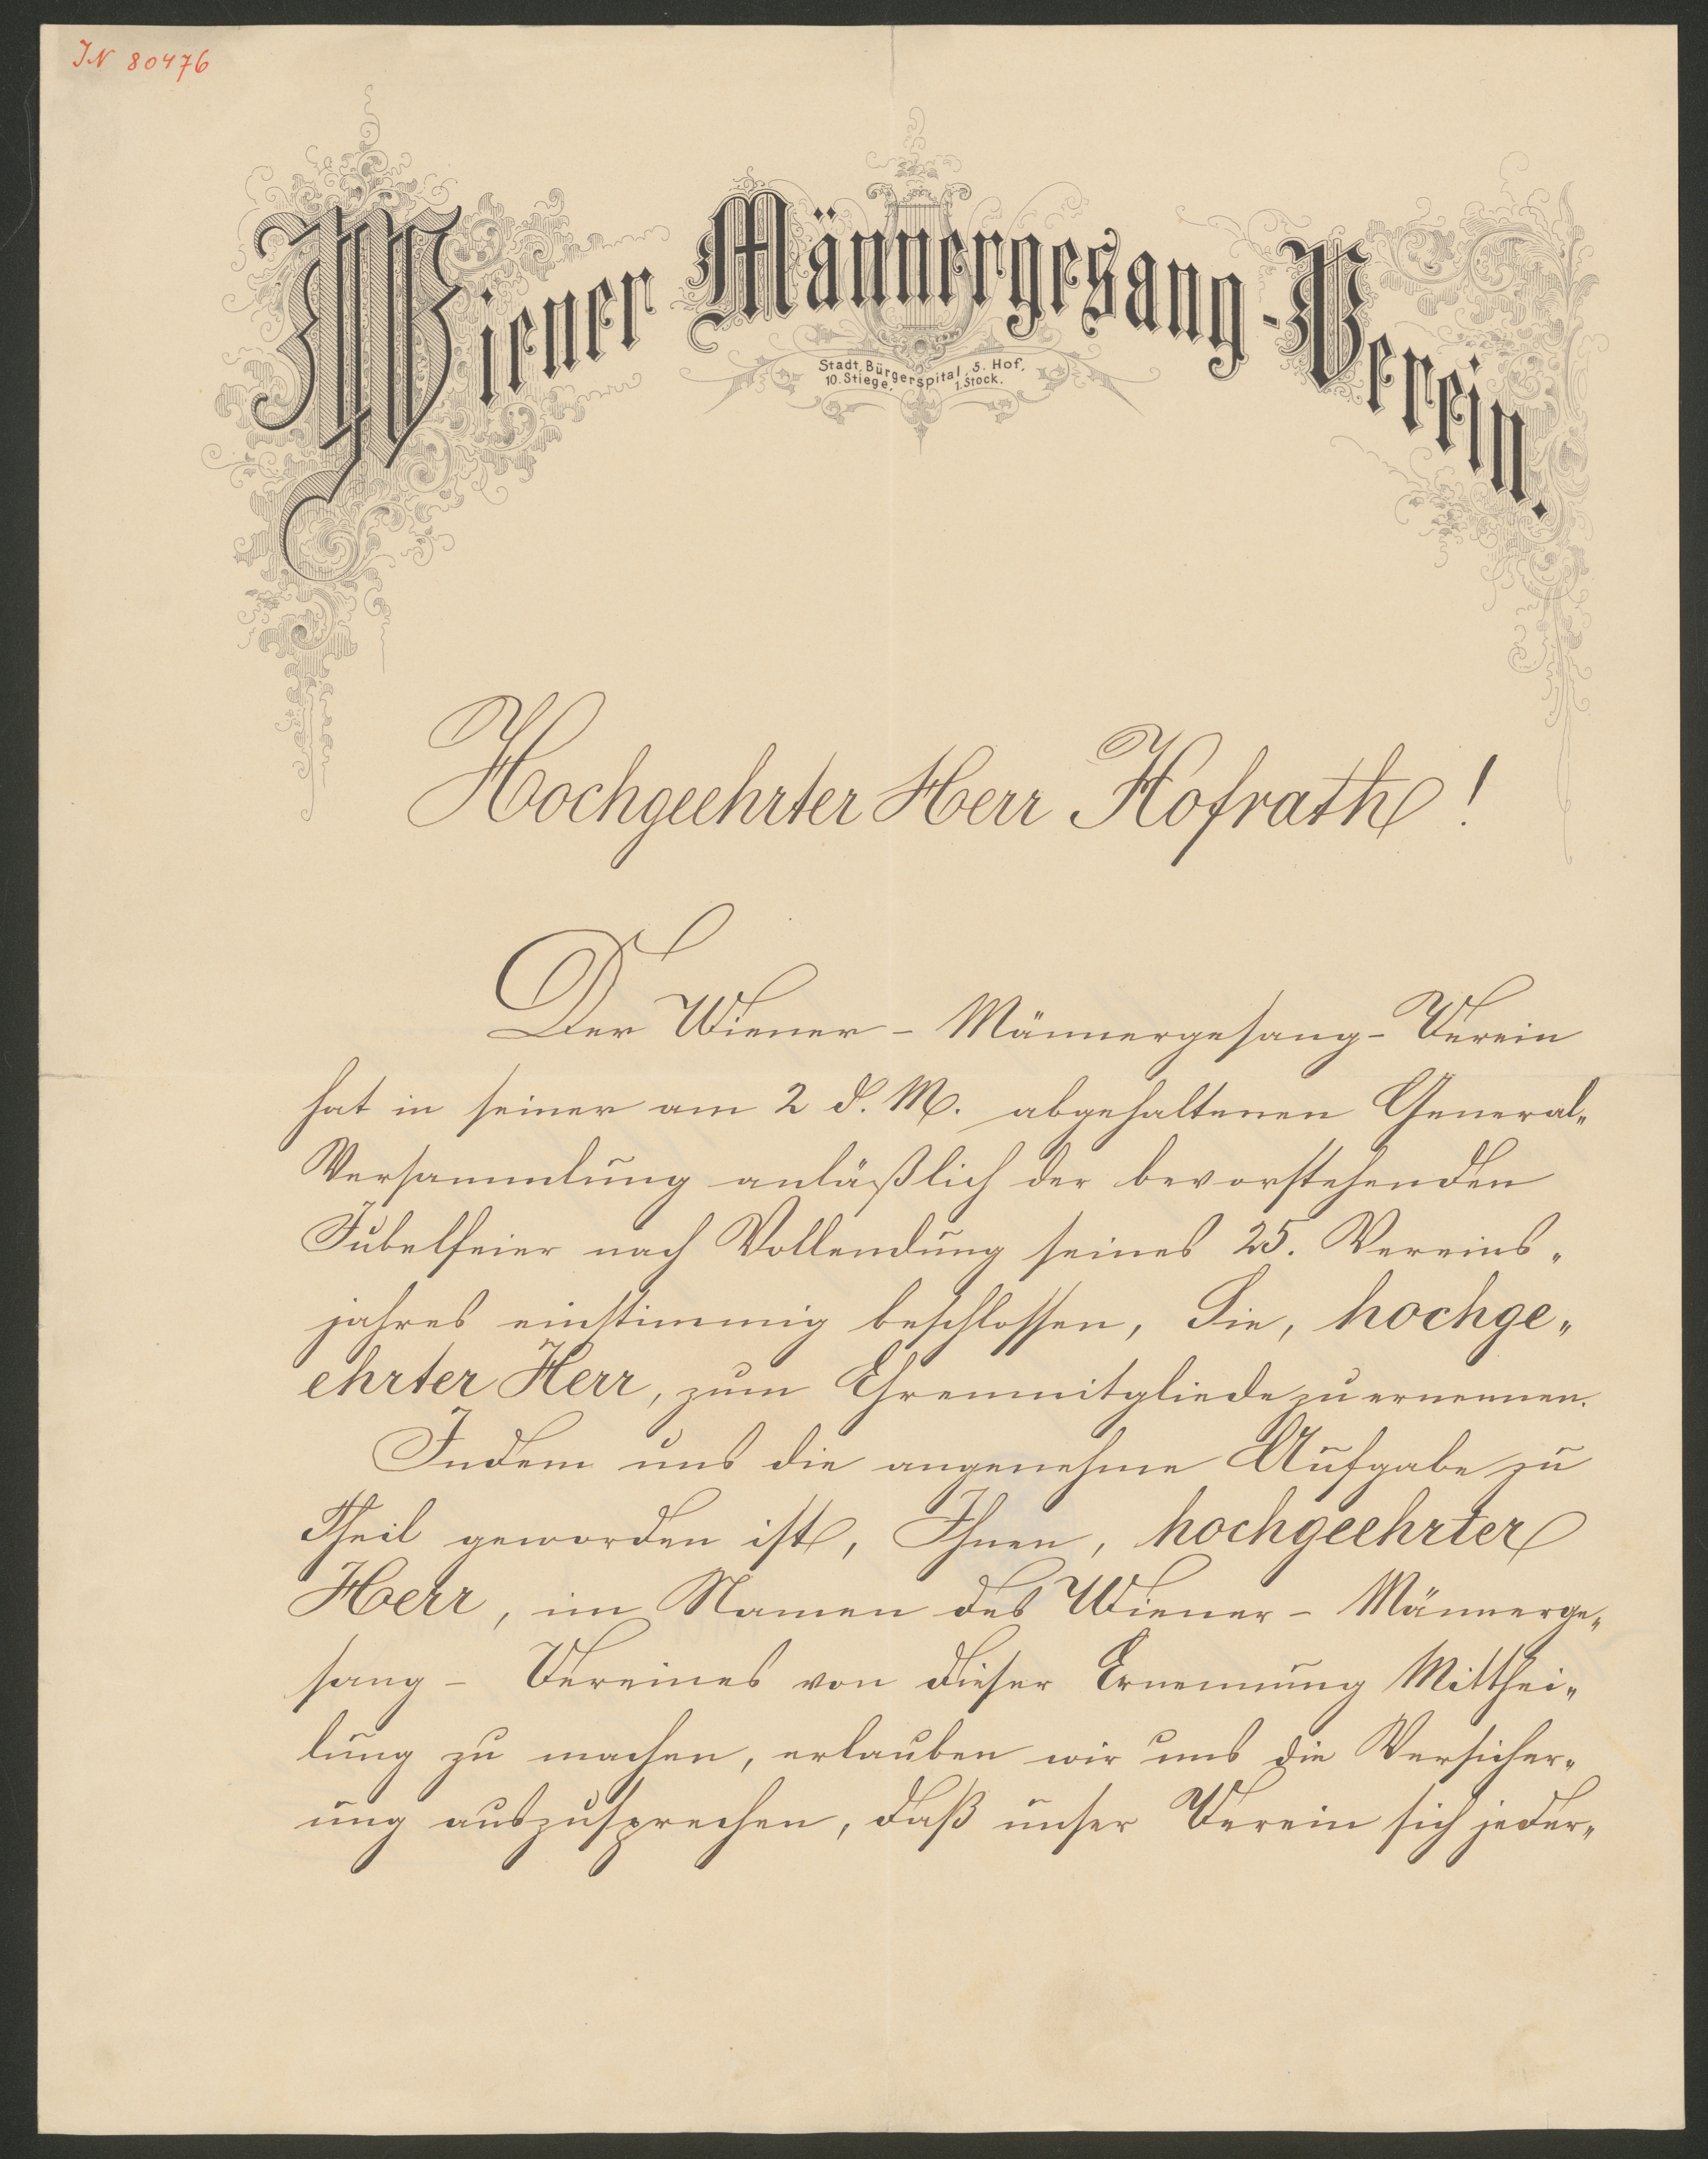 IN 80476
Wiener Männergesang-Verein.
Stadt, Bürgerspital, 5. Hof,
10. Stiege, 1. Stock.
Hochgeehrter Herr Hofrath!
Der Wiener - Männergesang - Verein
hat in seiner am 2 d. M. abgehaltenen General„
Versammlung anläßlich der bevorstehenden
Jubelfeier nach Vollendung seines 25. Vereins„
jahres einstimmig beschlossen, Sie, hochge„
ehrter Herr, zum Ehrenmitgliede zu ernennen.
Indem uns die angenehme Aufgabe zu
Theil geworden ist, Ihnen, hochgeehrter
Herr, im Namen des Wiener - Männerge„
sang - Vereines von dieser Ernennung Mitthei„
lung zu machen, erlauben wir uns die Versicher„
ung auszusprechen, daß unser Verein sich jeder„